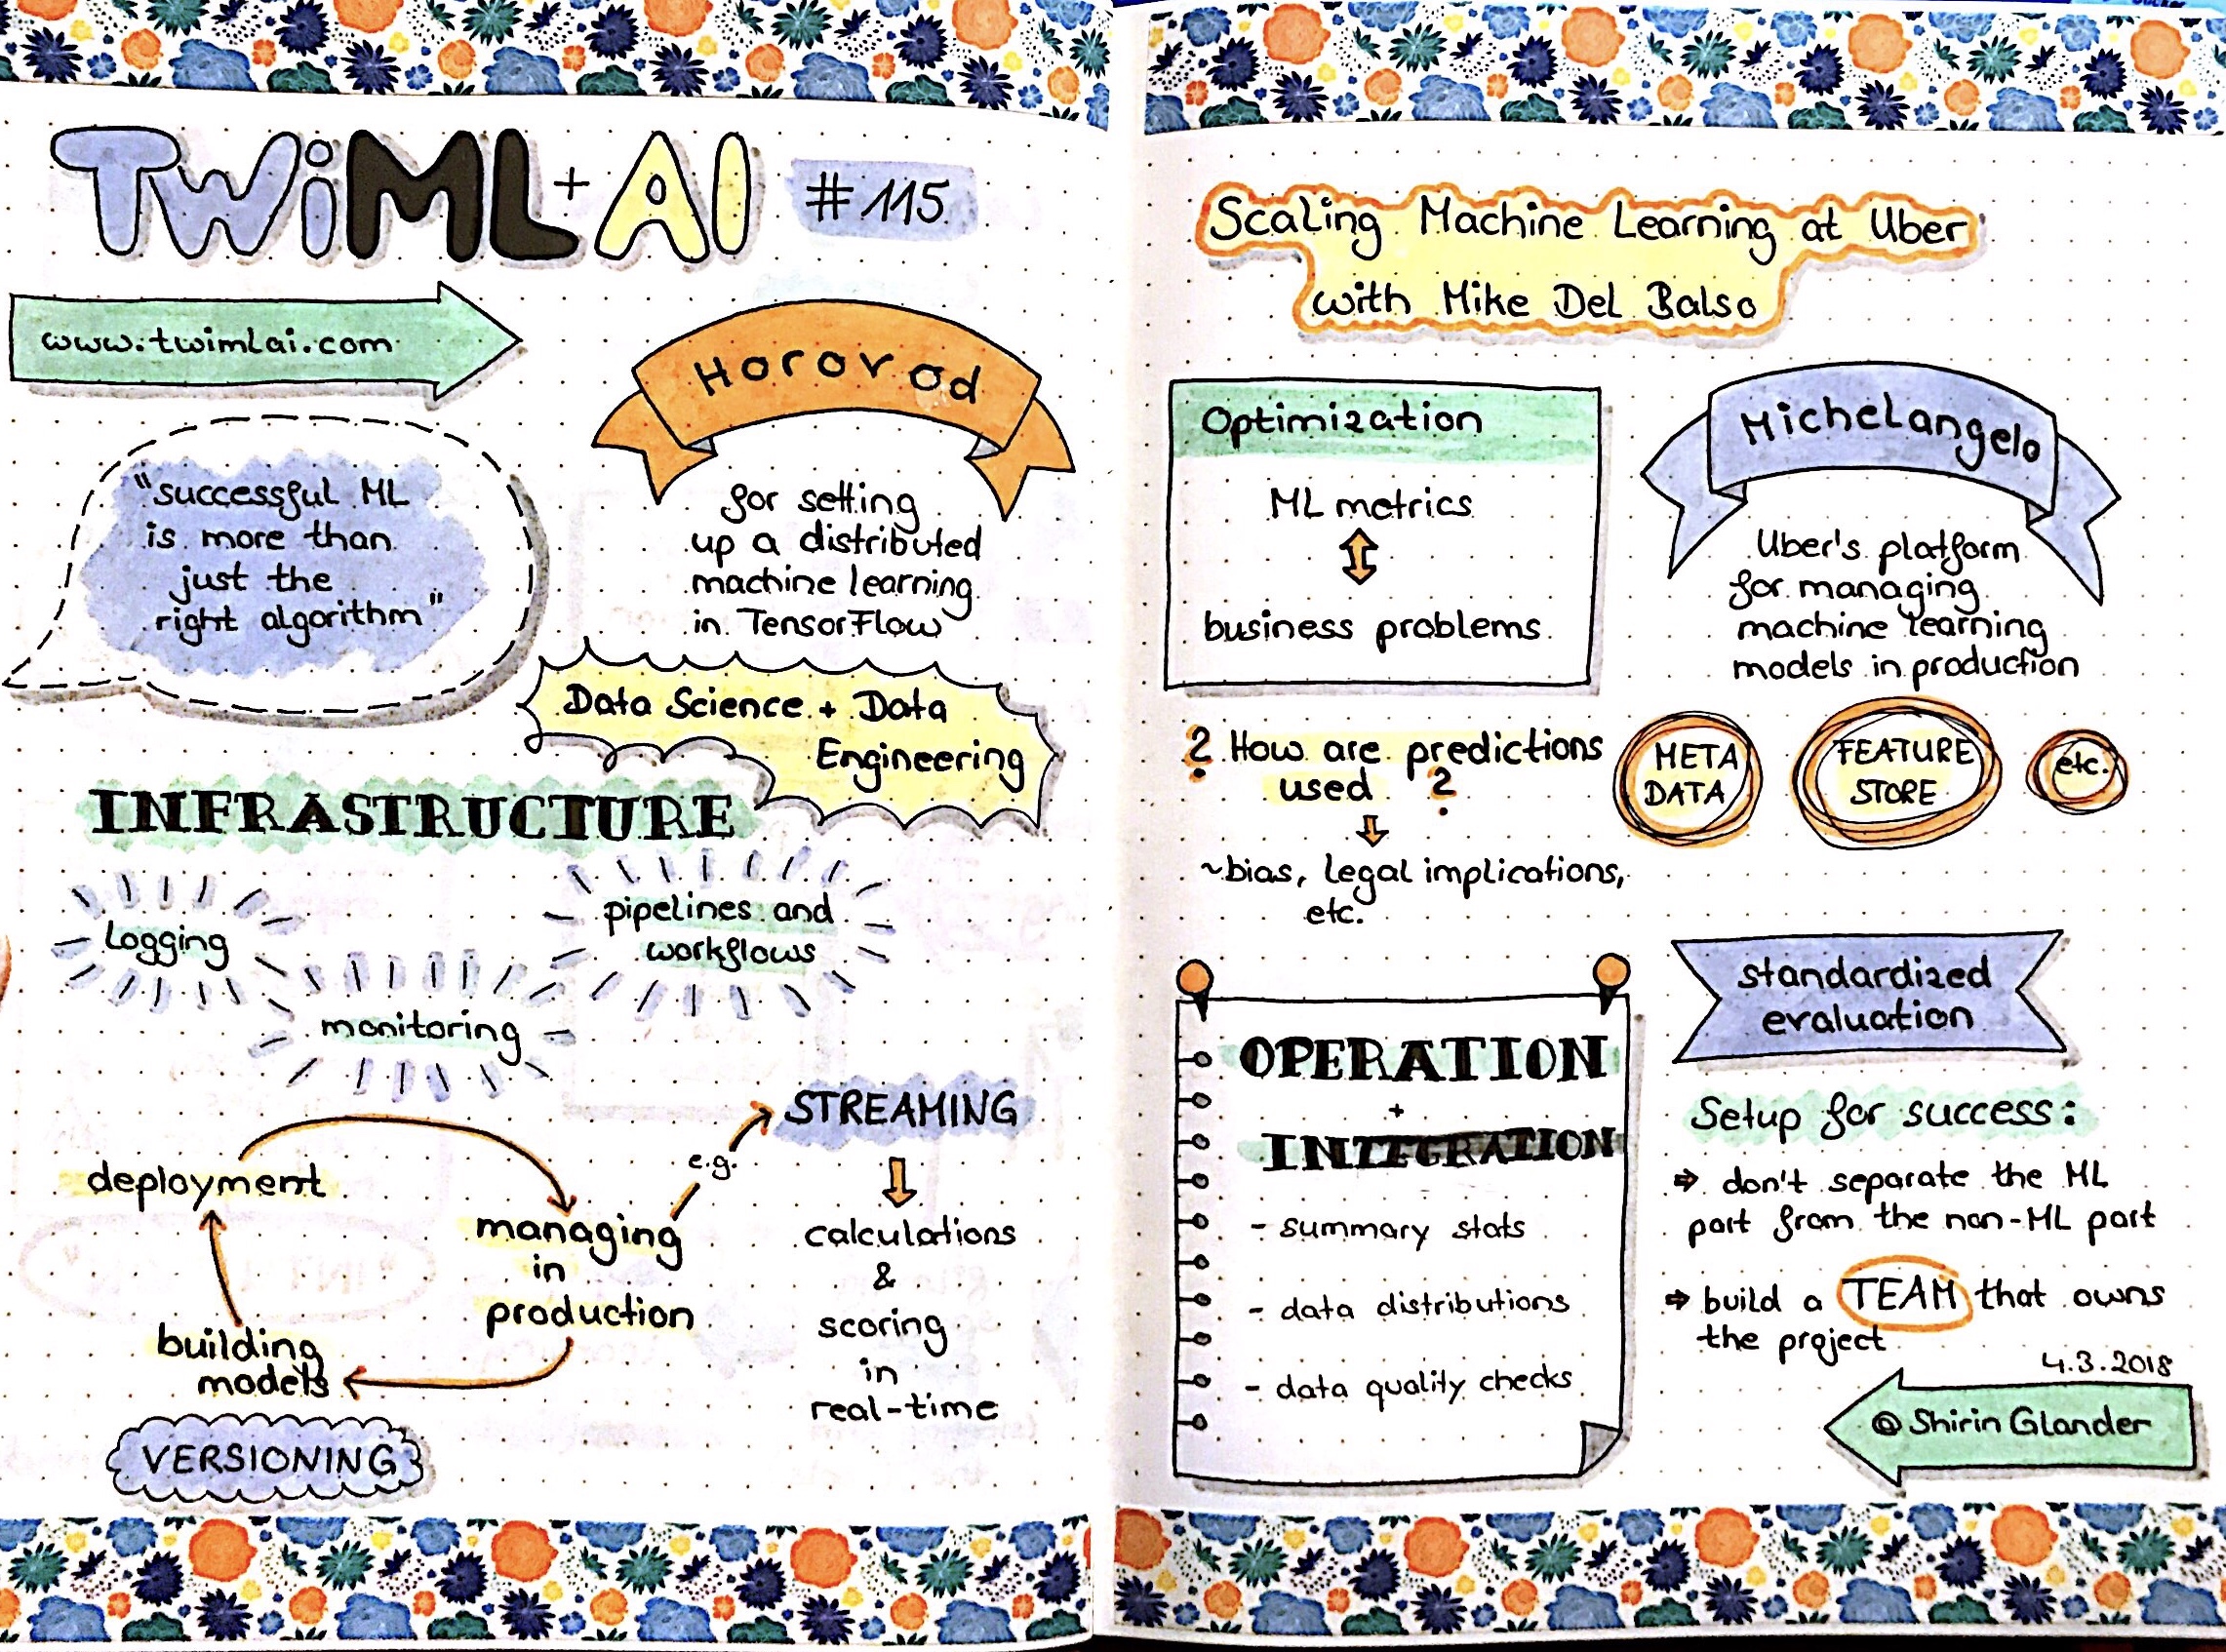 TWiML + AI #115
www.twimlai.com
Horovod
for setting
up a distributed
machine learning
in TensorFlow
"successful ML
is more than
just the
right algorithm"
Data Science + Data
Engineering
INFRASTRUCTURE
Logging
pipelines and
workflows
monitoring
STREAMING
e.g.
deployment
managing
in
production
building
models
calculations
&
scoring
in
real-time
VERSIONING
Scaling Machine Learning at Uber
with Mike Del Balso
Optimization
ML metrics
business problems
Michelangelo
Uber's platform
for managing
machine learning
models in production
? How are predictions
used ?
~bias, legal implications,
etc.
META
DATA
FEATURE
STORE
etc.
OPERATION
+
INTEGRATION
- summary stats
- data distributions
- data quality checks
standardized
evaluation
Setup for success:
⇒ don't separate the ML
part from the non-ML part
⇒ build a TEAM that owns
the project
4.3.2018
@ Shirin Glander